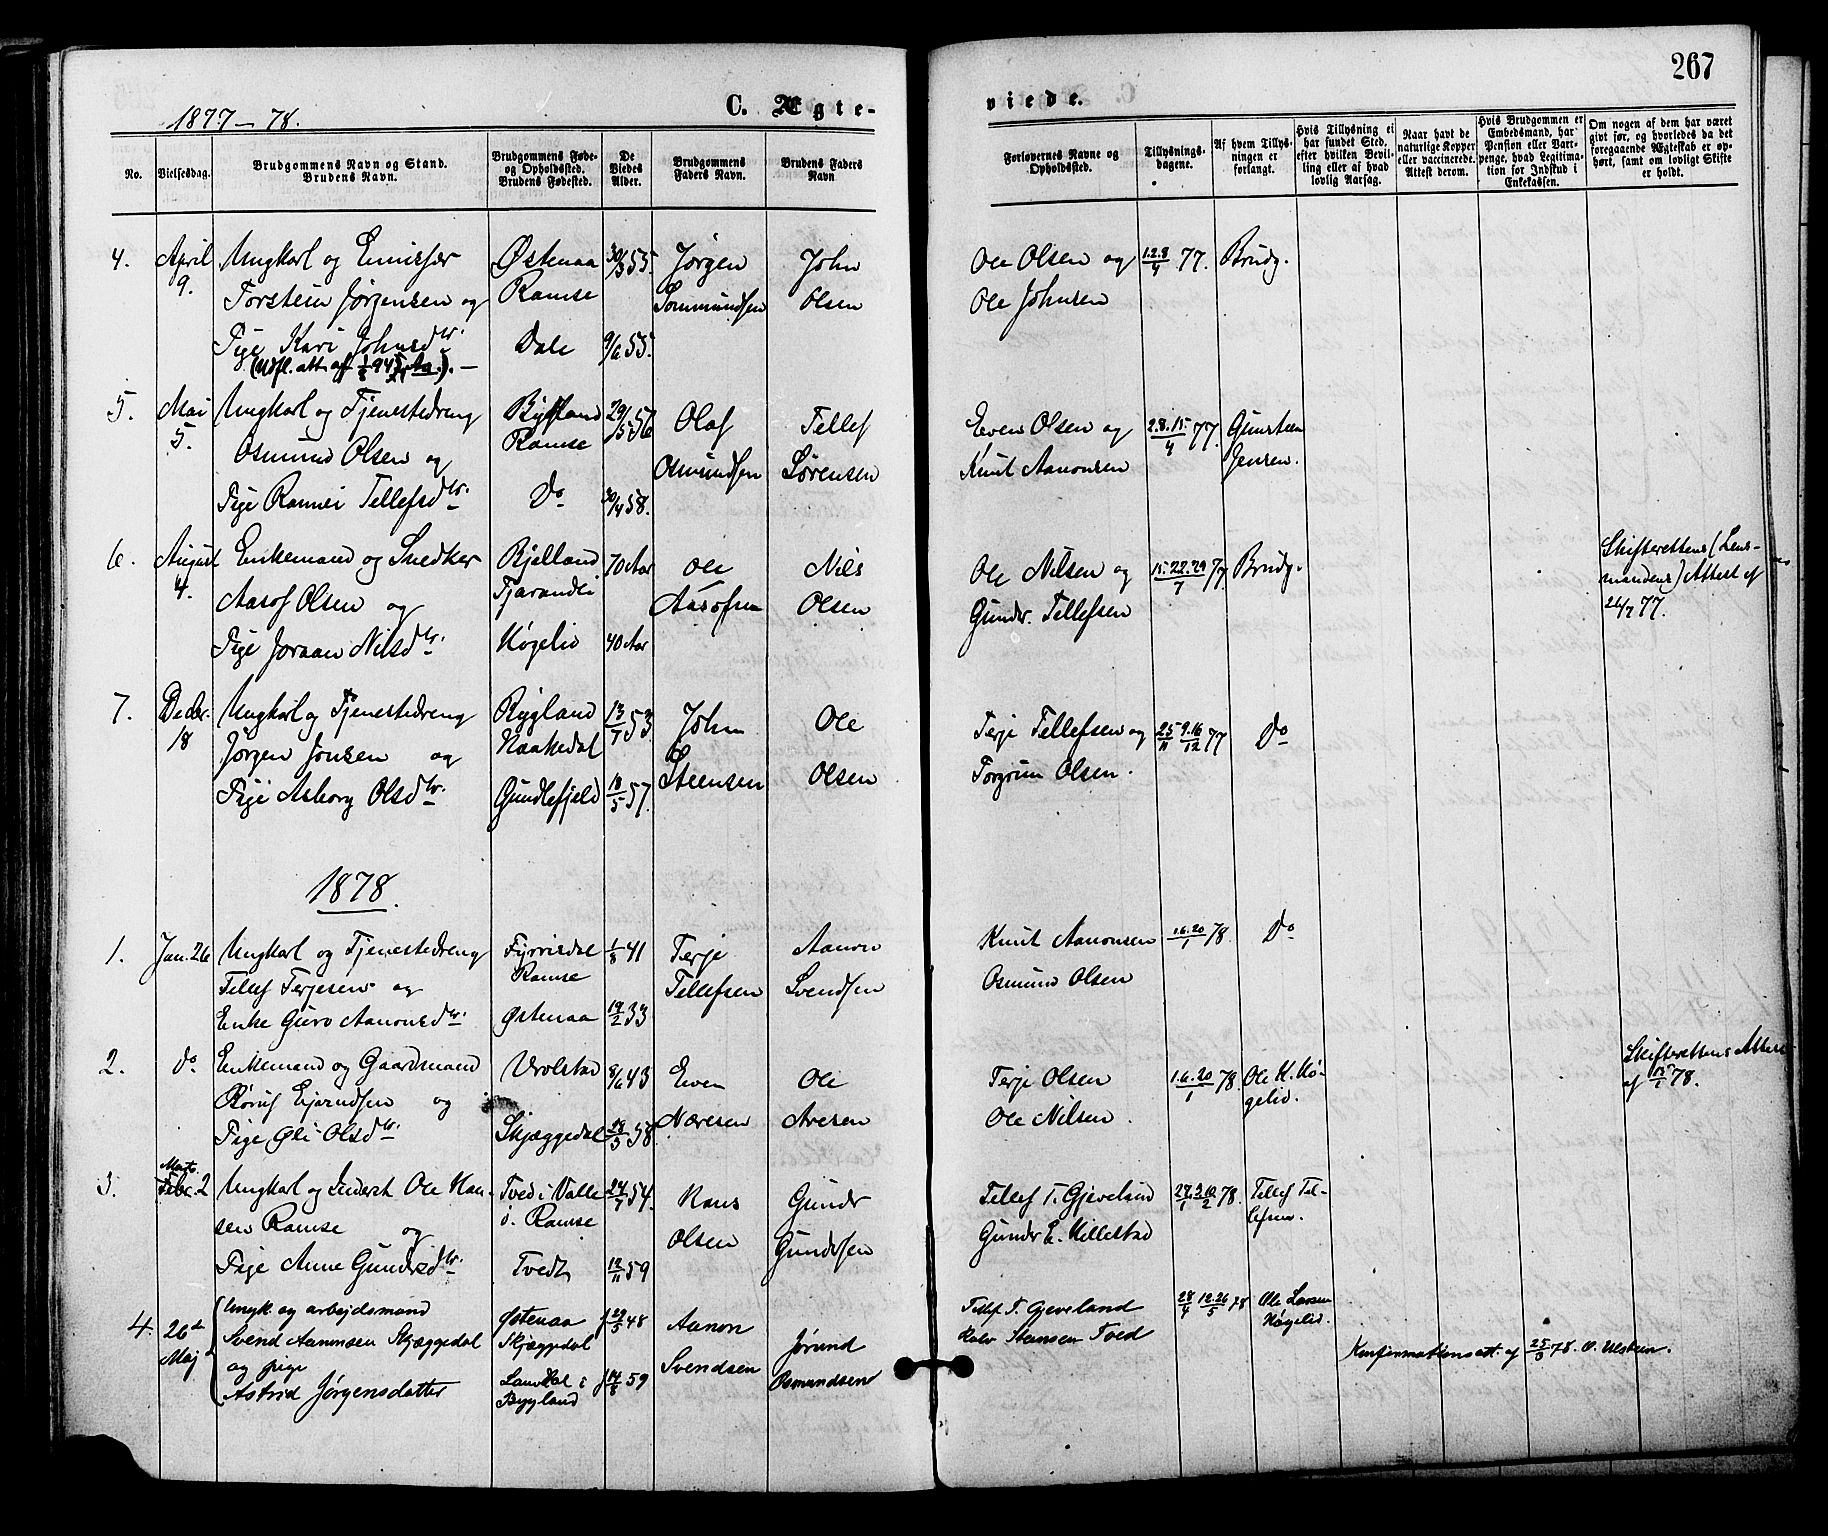 267
1877-78.
C. Ægte-
viede.
No.
Vielsesdag.
Brudgommens Navn og Stand.
Brudens Navn.
Brudgommens Føde-
og Opholdssted.
Brudens Fødested.
De
Viedes
Alder.
Brudgommens
Faders Navn.
Brudens Faders
Navn
Forlovernes Navne og
Opholdssted.
Tillysnings-
dagene.
Af hvem Tillys-
ningen er
forlangt.
Hvis Tillysning ei
har fundet Sted,
efter hvilken Bevil-
ling eller af hvad
lovlig Aarsag.
Naar havt de
naturlige Kopper
eller vaccinerede.
Attest derom.
Hvis Brudgommen er
Embedsmand, har
Pension eller Vart-
penge, hvad Legitima-
tion for Indskud i
Enkekassen.
Om nogen af dem har været
givt før, og hvorledes da det
foregaaende Ægteskab er op-
hørt, samt om lovligt Skifte
er holdt.
4. April 9.
Ungkarl og
Torstein Jørgensen og
Pige Kari Johnsdtr.
Østenaa
Ramse
Dale
30/3 55.
9/6 55.
Jørgen
John
Olsen
Ole Olsen og
Ole Johnsen
1.2.8/4 77.
Brudg.
5. Mai 5.
Ungkarl og Tjenestedreng
Osmund Olsen og
Pige Rannei Tellefsdtr.
Bygland
Ramse
Do
29/5 56
30/4 58.
Olaf
Osmundsen
Tellef
Sørensen
Even Olsen og
Knut Aanonsen
28.15/4 77.
Gunsteen
Jensen.
6. August 4.
Enkemand og Snedker
Aasof Olsen og
Pige Joraan Nilsdtr.
Bjelland
Høgelid
70 Aar
40 Aar
Ole
Aasofsen
Nils
Olsen
Ole Nilsen og
Gundr. Tellefsen
15.22.29/7 77
Brudg.
Skifterettens (Lens-
mandens) Attest af
26/7 77.
7. Decbr. 18
Ungkarl og Tjenestedreng
Jørgen Jonsen og
Pige Asborg Olsdtr.
Bygland
Haakedal
Gundlefjeld
13/7 53.
18/5 57.
John
Steensen
Ole
Olsen
Terje Tellefsen og
Torgrim Olsen.
25/11 9.16/12 77
Do
1878.
1. Jan. 26
Ungkarl og Tjenestedreng
Tellef Terjesen og
Enke Guro Aanonsdtr.
Fyrrisdal
Ramse
Østenaa
1/8 41
19/2 33
Terje
Tellefsen
Aanon
Svendsen
Knut Aanonsen
Osmund Olsen
1.6.20/1 78.
Do
2. do
Enkemand og Gaardmand
og
Pige Øli Olsdtr.
Vrolstad
Skjæggedal
8/6 43
28/5 58.
Even
Næresen
Ole
Aresen
Terje Olsen
Ole Nilsen.
1.6.20/1 78
Ole K. Hø-
gelid.
Skifterettens Attest
af 15/1 78.
3. Marts Febr. 2
Ungkarl og Inderst Ole Han-
sen Ramse og
Pige Anne Gundersdtr.
Tved i Valle
o. Ramse
Tvedt
24/7 54.
12/11 59
Hans
Olsen
Gundr
Gundersen
Tellef T. Gjeveland
Gundr E. Hillestad
27/1 3.10/2 78.
Tellef Tel-
lefsen.
4. 26de Maj
Ungk. og arbejdsmand
Svend Aanonsen Skjæggedal
og pige
Astrid Jørgensdatter
Østenaa
Skjæggedal
Landdal i
Bygland
f 29/5 48
f 14/8 59
Aanon
Svendsen
Jørund
Osmundsen
Tellef T. Gjeveland
Kalv Stensen Tved
28/4 12.26/5 78
Ole Larsen
Høgelid.
Konfirmationsatt. af 25/3 78. O. Ulstein.